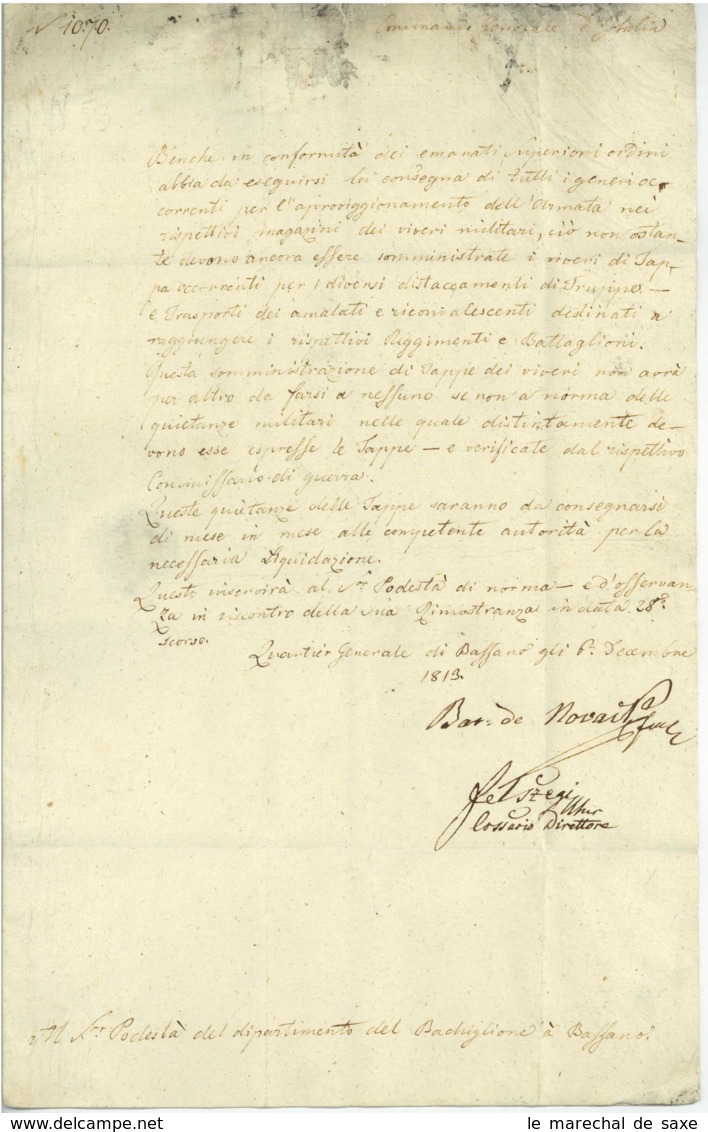 N 1070. Comando generale d'Italia
Benche in conformità dei emanati superiori ordini
abbia da eseguirsi la consegna di tutti i generi oc-
correnti per l'aproviggionamento dell'Armata nei
rispettivi magazini dei viveri militari, ciò non ostan-
te devono ancora essere somministrate i viveri di Tap-
pa occorrenti per i diversi distaccamenti di Truppe —
e Trasporti dei amalati e riconvalescenti distinati a
raggiungere i rispettivi Reggimenti e Battaglioni.
Questa somministrazione di Tappe dei viveri non avrà
per altro da farsi a nessuno se non a norma delle
quietanze militari nelle quale distintamente de-
vono esse espresse le Tappe — e verificate dal rispettivo
Commissario di guerra.
Queste quietanze delle Tappe saranno da consegnarsi
di mese in mese alle competente autorità per la
necessaria Liquidazione.
Questo inservirà al Sor Podestà di norma — e d'osservan-
za in riscontro della sua Rimostranza in data 28e
scorso.
Quartier Generale di Bassano gli 6e Decembre
1813.
Bar: de
Felszegi
Direttore
Al Sor Podestà del dipartimento del Bachiglione à Bassano.
le marechal de saxe